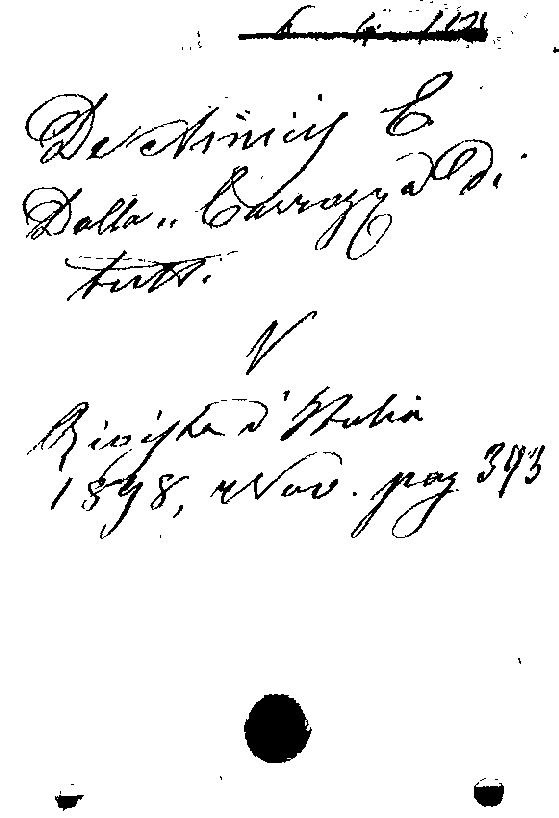 De Amicis E
Dalla „ Carrozza di
tutti.
V
Rivista d'Italia
1898, Nov. pag 393